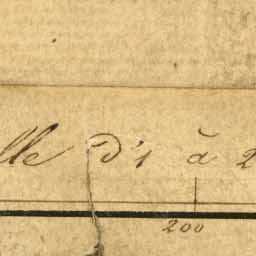 lle d's à 2
200